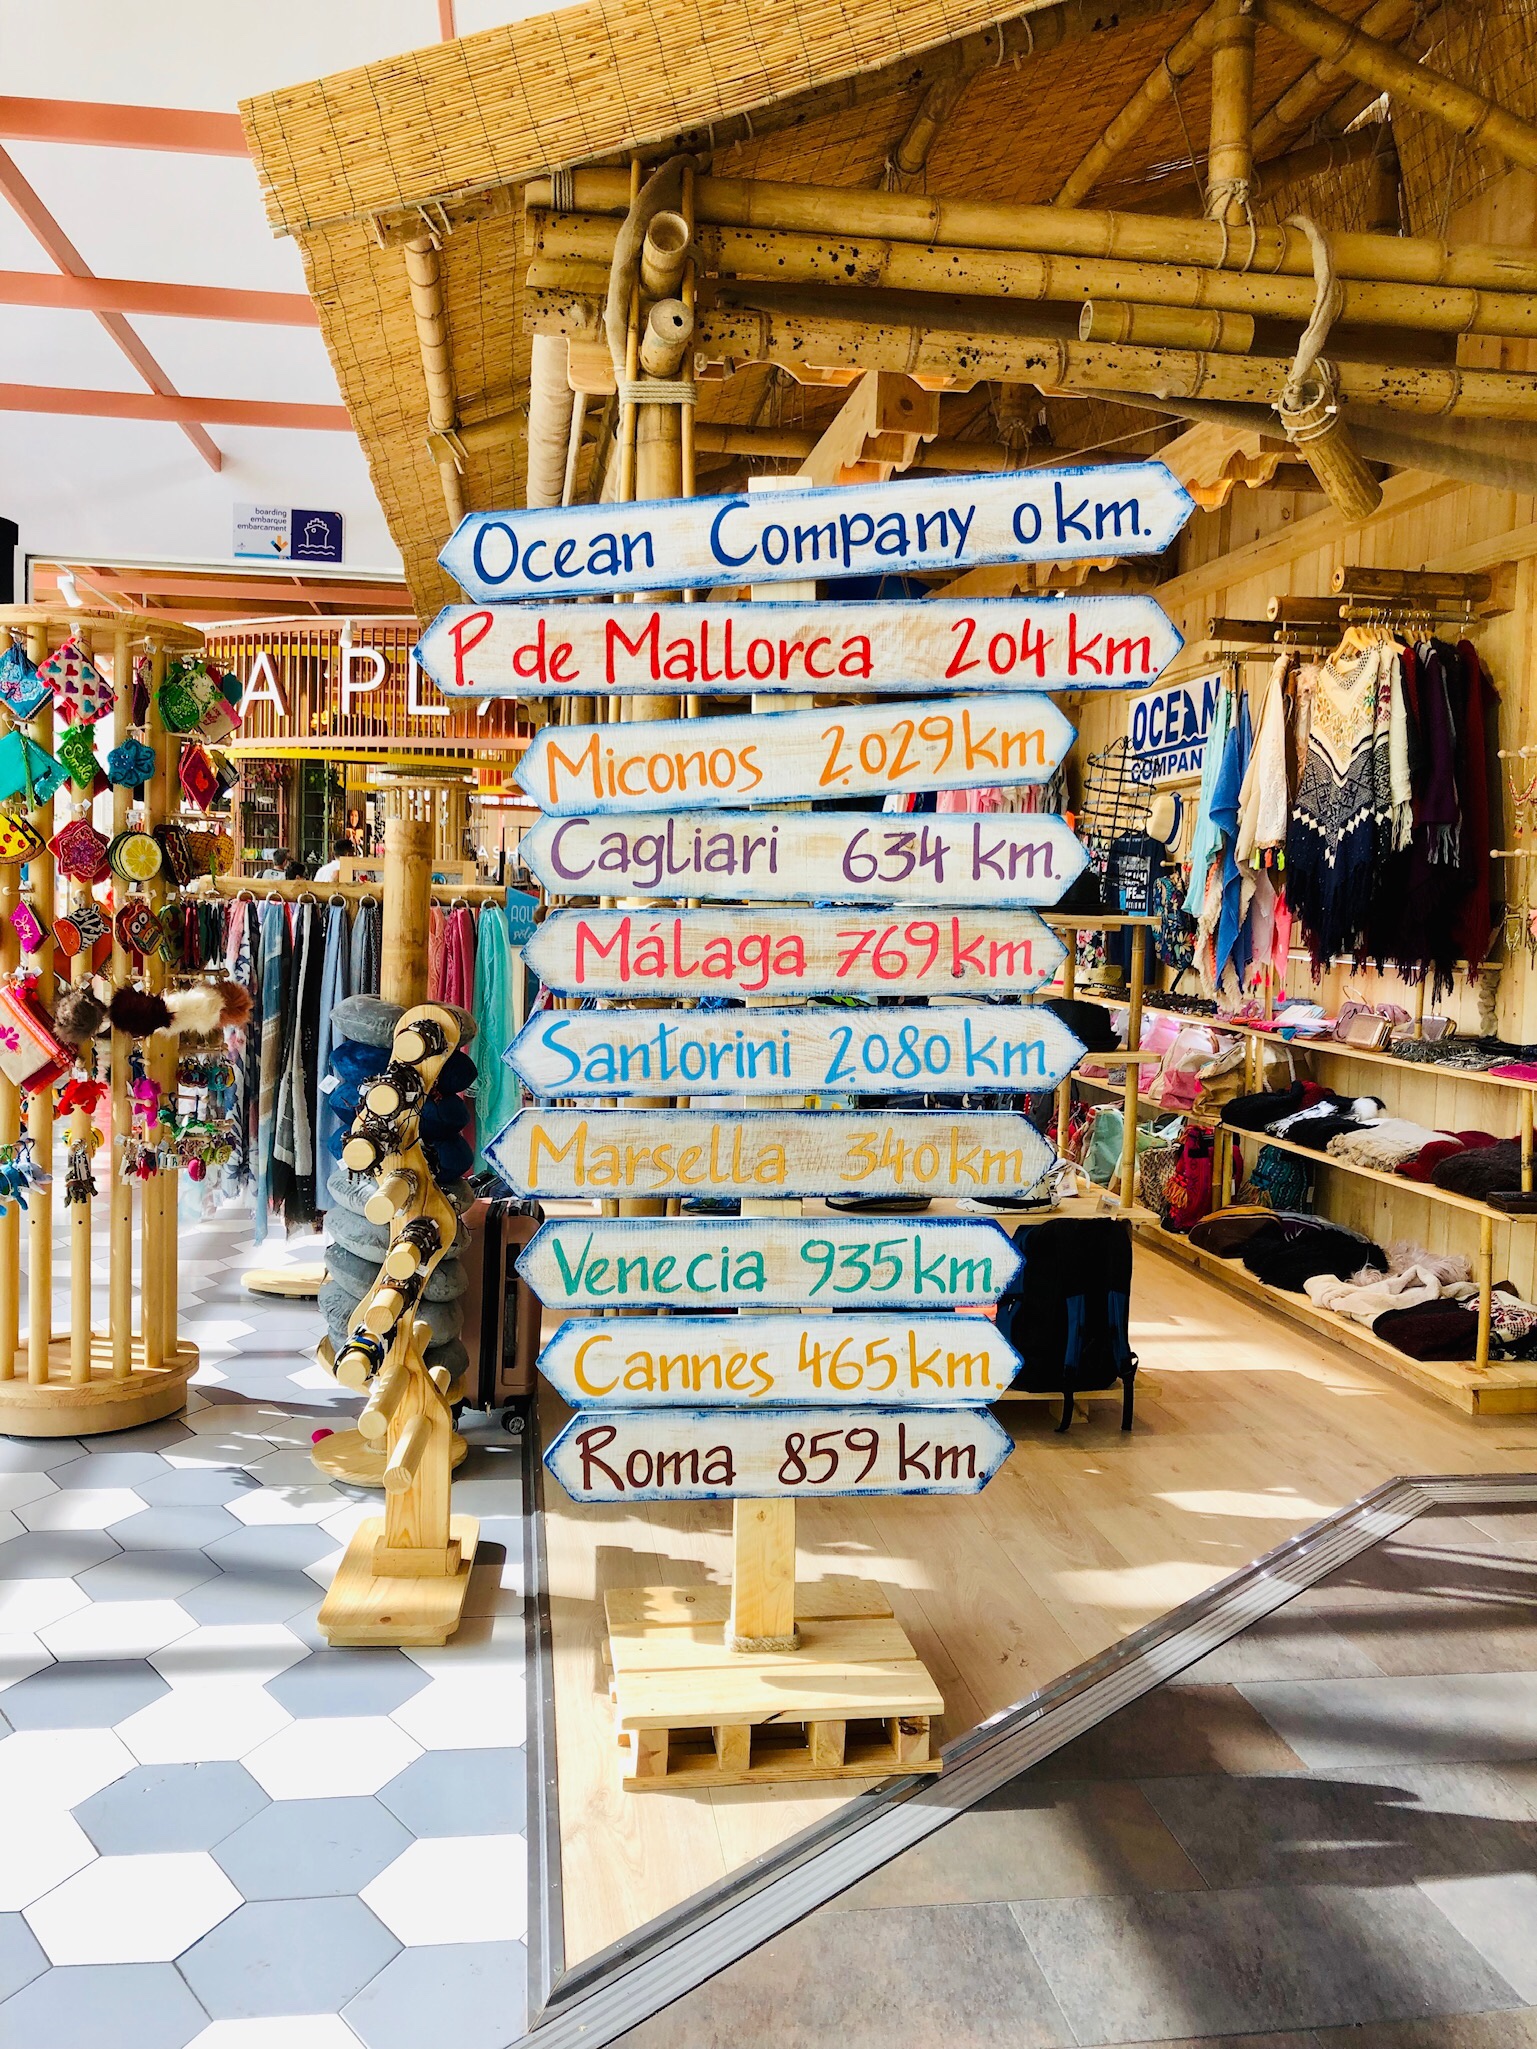 boarding
embarque
embarcament
Ocean Company 0 km.
P. de Mallorca 204 km.
A PL
Miconos 2.029 km.
OCEAN
COMPAN
Cagliari 634 km.
AQU
Málaga 769 km.
Santorini 2.080 km.
Marsella 340 km.
Venecia 935 km.
Cannes 465 km.
Roma 859 km.